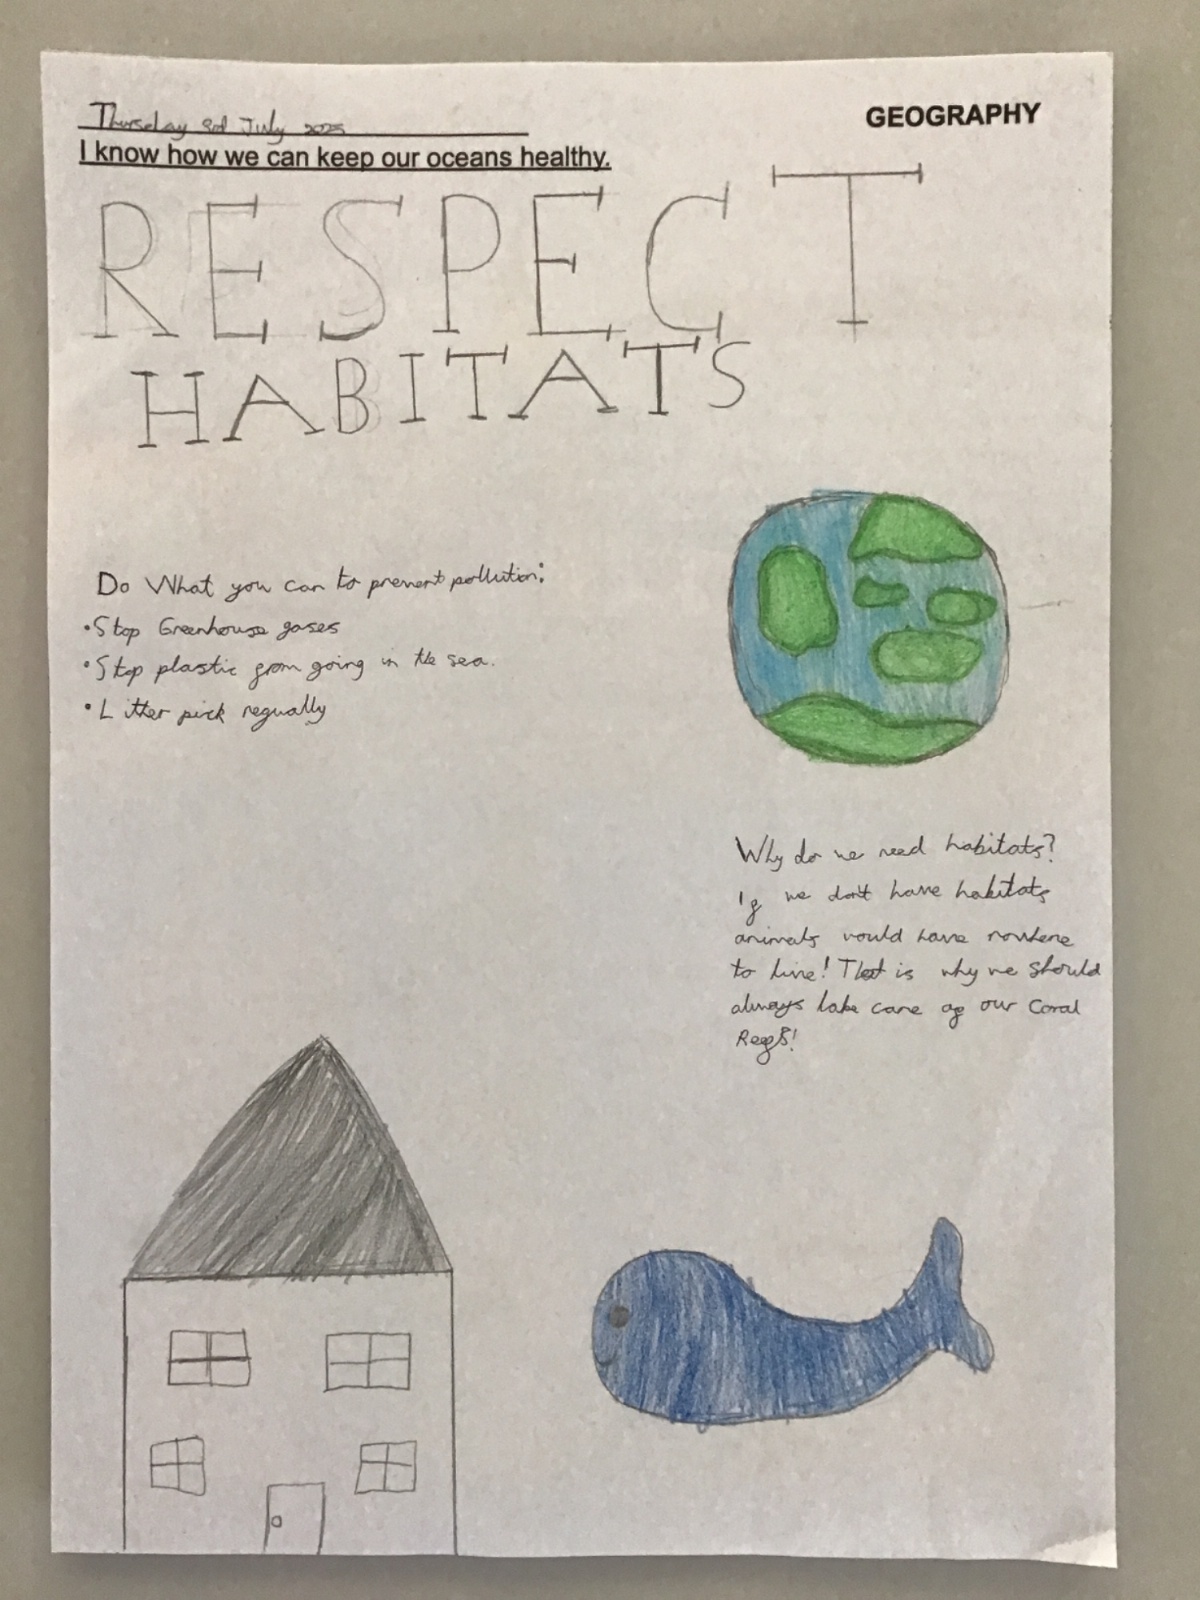 Thursday 3rd July 2025
GEOGRAPHY
I know how we can keep our oceans healthy.
RESPECT
HABITATS
Do What you can to prevent pollution:
• Stop Greenhouse gases
• Stop plastic from going in the sea.
• Litter pick regually
Why do we need habitats?
If we don't have habitats
animals would have nowhere
to live! That is why we should
always take care of our Coral
Reefs!